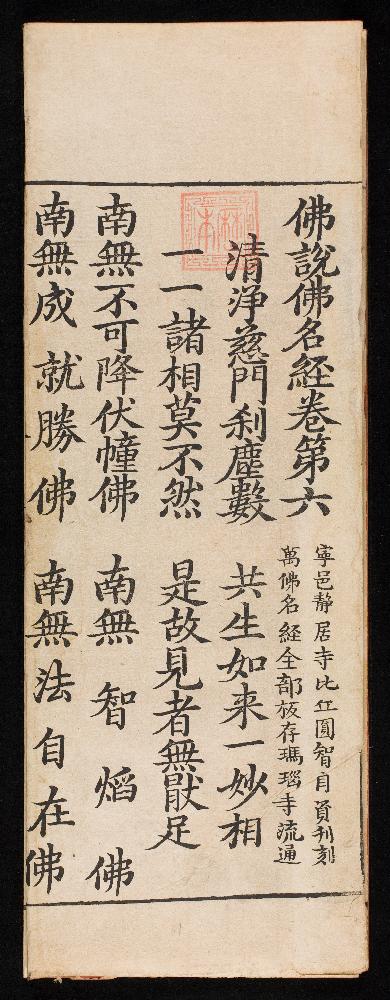 佛說佛名經卷第六
寧邑靜居寺比丘圓智自資刊刻
萬佛名經全部板存瑪瑙寺流通
清淨慈門刹塵數 共生如来一妙相
一一諸相莫不然 是故見者無猒足
南無不可降伏幢佛 南無智焰佛
南無成就勝佛 南無法自在佛